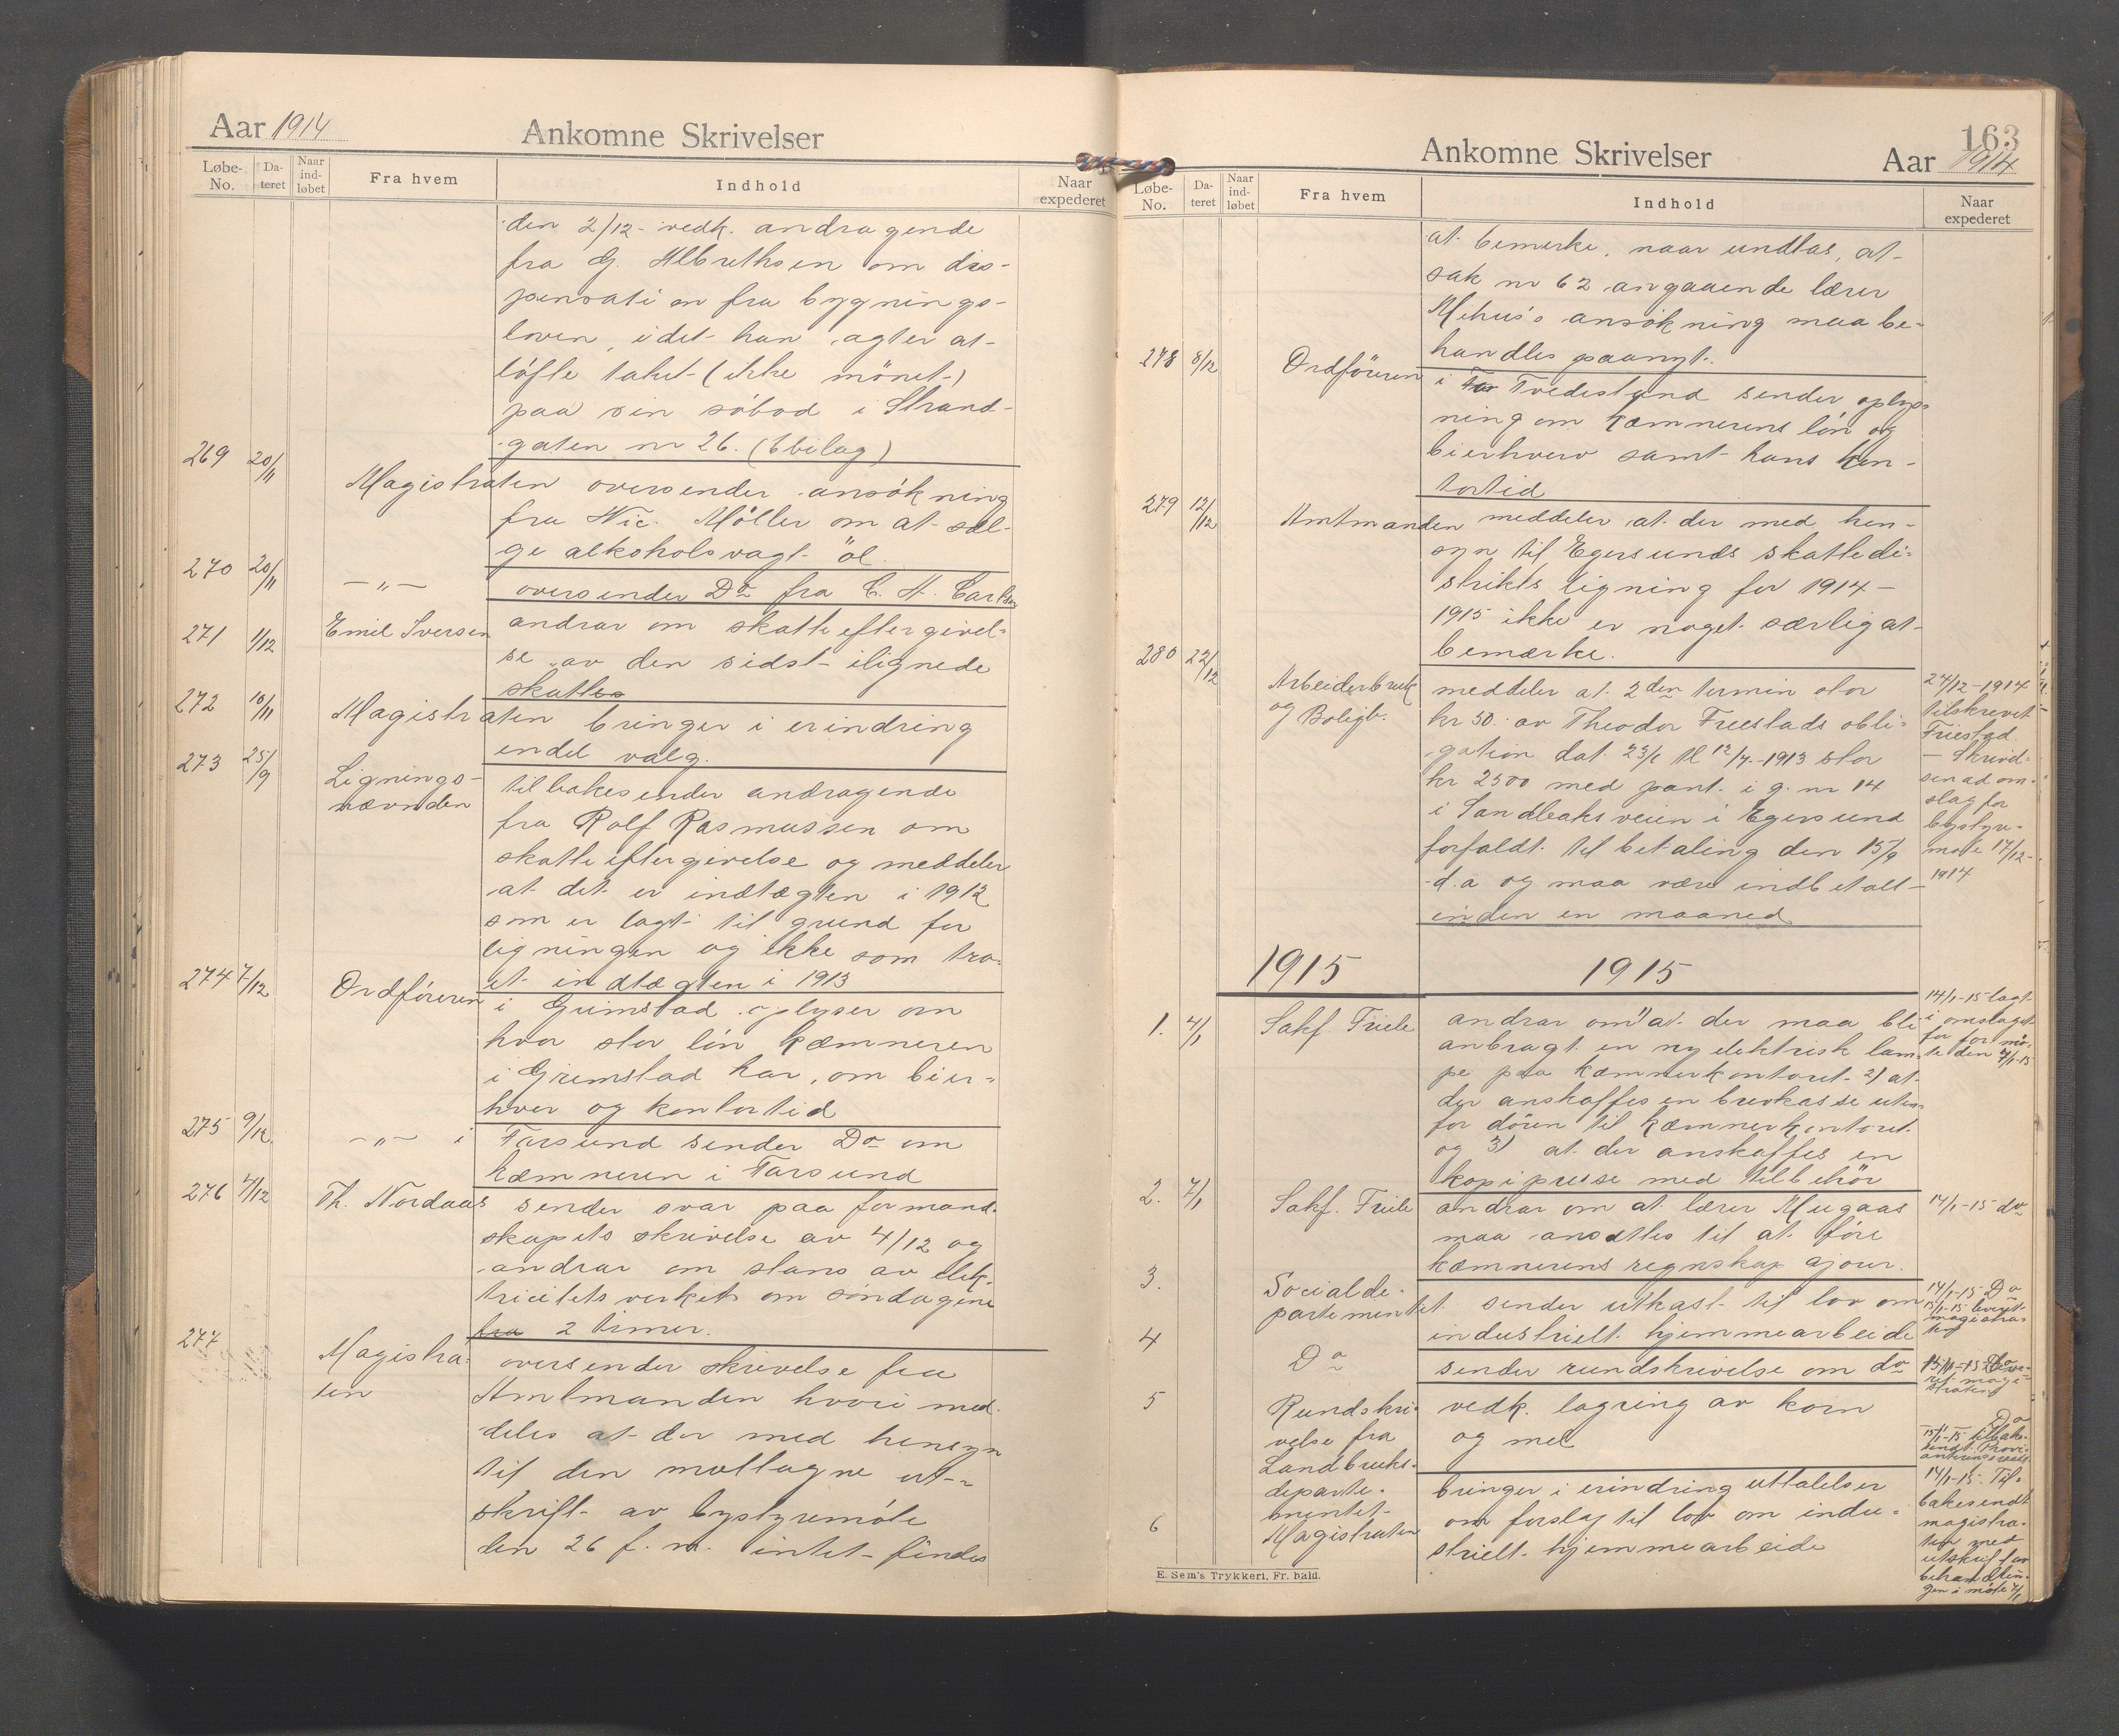 Aar 1914
Ankomne Skrivelser
Løbe-No.
Da-teret
Naar ind-løbet
Fra hvem
Indhold
Naar expederet
den 2/12 vedk. andragende
fra G. Albrethsen om dis-
pensation fra bygnings-
loven, idet han agter at
løfte taket (ikke mönet)
paa sin söbod i Strand-
gaten nr 26. (6 bilag)
269 20/11 Magistraten oversender ansökning
fra Nic. Möller om at sæl-
ge alkoholsvagt öl.
270 20/11 —„— oversender Do fra C. A. Carlsen
271 1/12 Emil Iversen andrar om skatteeftergivel-
se av den sidst ilignede
skatt
272 10/11 Magistraten bringer i erindring
endel valg.
273 25/9 Lignings-
nævnden
tilbakesender andragende
fra Rolf Rasmussen om
skatteeftergivelse og meddeler
at det er indtægten i 1912
som er lagt til grund for
ligningen og ikke som tro-
et indtægten i 1913
274 7/12 Ordföreren i Grimstad oplyser om
hvor stor lön kæmneren
i Grimstad har, om bier-
hver og kontortid
275 9/12 —„— i Farsund sender Do om
kæmneren i Farsund
276 7/12 Th. Nordaas sender svar paa formand-
skapets skrivelse av 4/12 og
andrar om stans av elek-
tricitetsverket om söndagene
fra 2 timer.
277 Magistra-
ten
oversender skrivelse fra
Amtmanden hvori med-
deles at der med hensyn
til den mottagne ut-
skrift av bystyremöte
den 26 f. m. intet findes
163
Ankomne Skrivelser
Aar 1914
Løbe-No.
Da-teret
Naar ind-løbet
Fra hvem
Indhold
Naar expederet
at bemerke, naar undtas, at
sak nr 62 angaaende lærer
Mihus's ansökning maa be-
handles paanyt.
278 8/12 Ordföreren i Tvedestrand sender oplys-
ning om kæmnerens lön og
bierhverv samt hans kon-
tortid
279 12/12 Amtmanden meddeler at der med hen-
syn til Egersunds skattedi-
strikts ligning for 1914-
1915 ikke er noget særlig at
bemærke.
280 22/12 Arbeiderbruk
og Boligb.
meddeler at 2den termin stor
kr 50.- av Theodor Freestads obli-
gation dat. 23/6 tl 12/7-1913 stor
kr 2500 med pant i g. nr 14
i Sandbakveien i Egersund
forfaldt til betaling den 15/9
d.a og maa være indbetalt
inden en maaned
24/12-1914
tilskrevet
Friestad.
— Skrivel-
sen ad om-
slag for
bystyre-
møte 17/12-
1914
1915
1915
1. 4/1 Sakf. Friele andrar om 1) at der maa bli
anbragt en ny elektrisk lam-
pe paa kæmnerkontoret 2) at
der anskaffes en brevkasse uten-
for dören til kæmnerkontoret
og 3) at der anskaffes en
kopipresse med tilbehör
14/1-15 lagt
i omslaget
for for.mö-
te den 7/1-15
2. 7/1 Sakf. Friele andrar om at lærer Mugaas
maa ansættes til at före
kæmnerens regnskap ajour.
14/1-15 do
3. Socialde-
partementet sender utkast til lov om
industrielt hjemmearbeide
14/1-15 Do
15/1-15 levert
magistra-
ten
4 Do sender rundskrivelse om do
5 Rundskri-
velse fra
Landbruks-
departe-
mentet
vedk. lagring av korn
og mel
Do
15/1-15 tilbake-
sendt Provi-
anteringsraad
6 Magistraten bringer i erindring uttalelser
om forslag til lov om indu-
strielt hjemmearbeide
14/1-15. Til-
bakesendt
magistra-
ten med
utskrift av
behandlin-
gen i møte 7/1
E. Sem's Trykkeri, Fr. hald.